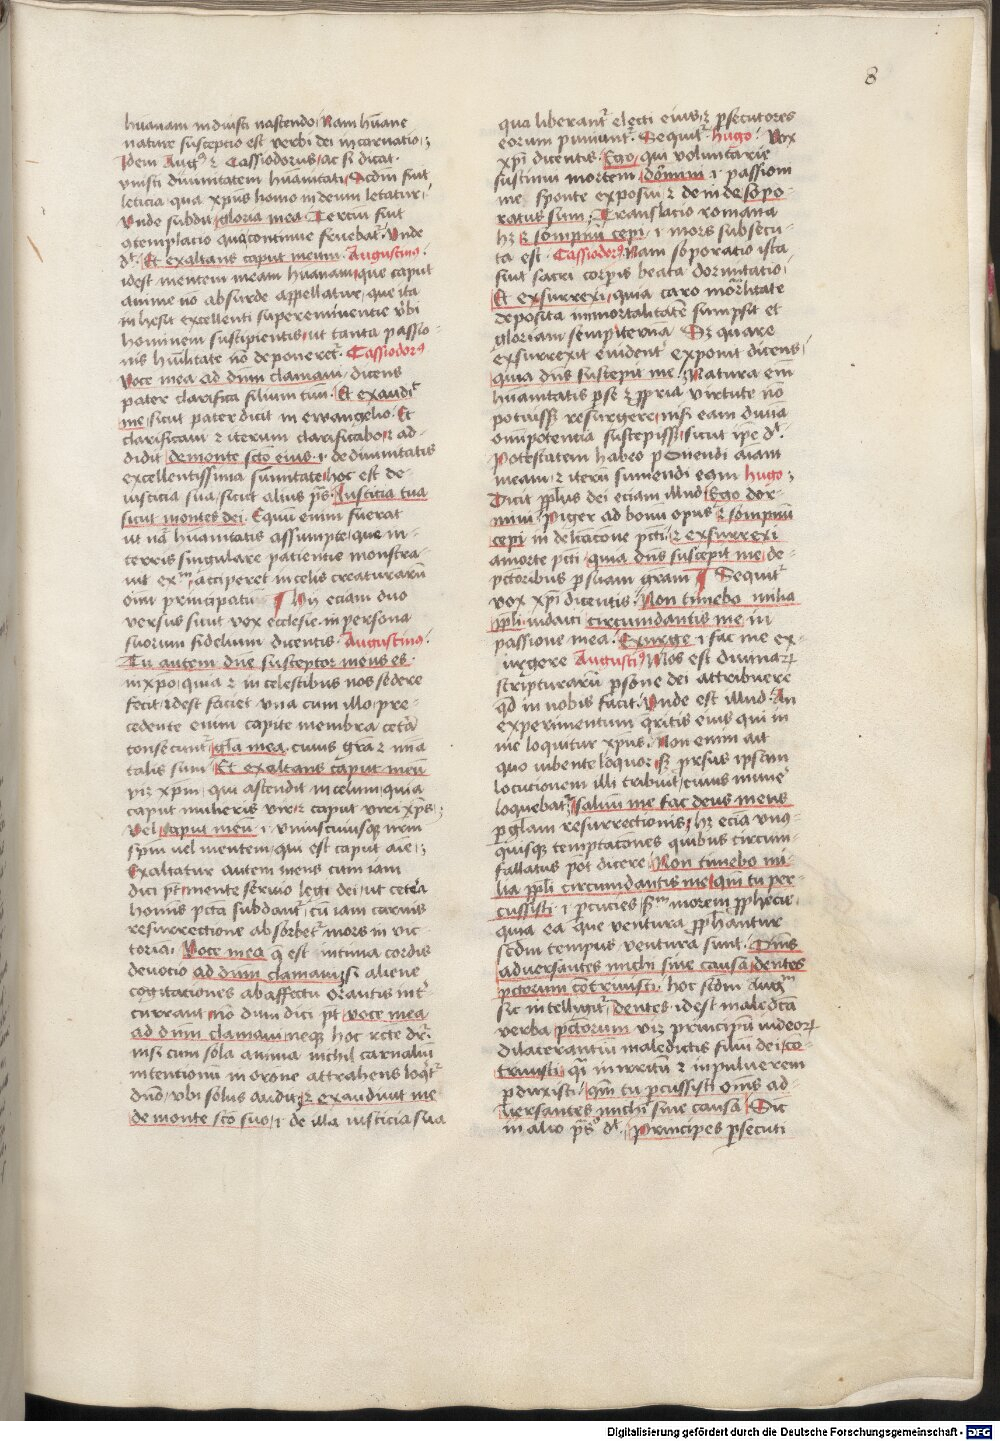 8
humanam induisti nascendo Nam hūane
nature susceptio est verbi dei incarnatio ꝫ
Idem Augꝰ ꝛ Cassiodorus ac si dicat
unisti diuinitatem huanitati Scdm fuit
leticia qua xpus homo in deum letatur
Vnde subdit gloria mea Terciū fuit
ꝯtemplacio qua continue fruebatᷣ Vnde
dᷣ Et exaltans caput meum Augustinus
idest mentem meam huanam que caput
anime nō absurde appellatur que ita
inhesit excellenti supereminentie v̓bi
hominem suscipientis ut tanta passio-
nis huīlitate nō deponeretᷣ Cassiodorꝰ
Voce mea ad dnm clamaui dicens
pater clarifica filium tuū Et exaudiᵗ
me sicut pater dicit in ewangelio Et
clarificaui ꝛ iterum clarificabo ꝛ ad-
didit de monte scō suo i de diuinitatis
excellentissima sumitate hoc est de
iusticia sua sicut alius pꝰs Iusticia tua
sicut montes dei Equū enim fuerat
ut nā huanitatis assumpte que in
terris singulare patientie monstra-
uit exᵐ acciperet in celis creaturarū
oīm principatū ¶ Hii eciam duo
versus sicut vox ecclesie in persona
suorum fidelium dicentis Augustinus
Tu autem dne susceptor meus es
in xpo quia ꝛ in celestibus nos sedere
fecit idest faciet vna cum illo pre-
cedente enim capite membra cetā
consecuntᷣ gla mea cuius grā ꝛ mīa
talis sum Et exaltans caput meū
viꝫ xpm qui ascendit in celum quia
caput mulieris vir ꝛ caput viri xpꝰs ꝫ
Vel caput meū i vniuscuiusqꝫ nrm
spm uel mentem qui est caput aīe ꝫ
Exaltatur autem mens cum iam
dici pt mente seruio legi dei ut cetera
hominis pctā subdantᷣ cū iam carnis
resurrectione absorbetᷣ mors in vic-
toria Voce mea q̄ est intima cordis
deuocio ad dnm clamaui si aliene
cogitaciones ab affectu orantis intᷣ
currant nō dum dici pt voce mea
ad dnm clamaui neqꝫ hoc rcte drᷣ
nisi cum sola anima nichil carnaliū
intentionū in orōne attrahens loqᷣtᷣ
dnō vbi solus audit ꝛ exaudiuit me
de monte scō suo i de illa iusticia sua
qua liberantᷣ electi eius ꝛ ꝑsecutores
eorum puniuntᷣ Sequitᷣ hugo Vox
xpi dicentis Ego qui voluntarie
sustinui mortem dormiui i passioni
me sponte exposui ꝛ deinde sopo-
ratus sum Translacio romana
hꝫ ꝛ sompnū cepi i mors subsecu-
ta est Cassiodorꝰ Nam soporatio ista
fuit sacri corpis beata dormitatio
Et exsurrexi quia caro mōrlitate
deposita inmortalitatē sumpsit et
gloriam sempiterna Sꝫ quare
exsurrexit euidentᷣ exponit dicens
quia dns suscepit me Natura em̄
huanitatis ꝑ se ꝛ ꝓpria virtute nō
potuissꝫ resurgere nisi eam diuīa
omīpotentia suscepissꝫ sicut ipē dᷣ
Potestatem habeo ponendi aīam
meam ꝛ iterū sumendi eam hugo
Dicit pplus dei eciam illud Ego dor-
miui Piger ad bonū opus ꝛ sompnū
cepi in delictacōne pcti ꝛ exsurrexi
a morte pcti quia dns suscepit me de
pctoribus ꝑ suam grām ¶ Sequitᷣ
vox xpi dicentis Non timebo milia
ppli iudaici circumdantis me in
passione mea Exurge i fac me ex-
urgere Augustiꝰ Mos est diuinaꝝ
scripturarū ꝑsone dei attribuere
qd in nobis facit Vnde est illud An
experimentum q̄ritis eius qui in
me loquitur xpus Non enim ait
quo iubente loquor sꝫ prsus ipsam
locucionem illi tribuit cuius munē
loquebatᷣ saluū me fac deus meus
ꝑ glam resurrectionis hꝫ eciā vnꝰ-
quisqꝫ temptacōnes quibus circum-
fallatus pōt dicere Non timebo mi-
lia ppli circumdantis me qm̄ tu per-
cussisti i ꝑcucies sᵐ morem pphecie
quia ea que ventura pphantur
scdm tempus ventura sunt Omīs
aduersantes michi sine causa dentes
pctorum contriuisti hoc scdm Augᵐ
sic intelligitᷣ dentes idest maledcā
verba pctorum viꝫ principū iudeoꝝ
dilacerantiū maledictis filiū dei co-
triuisti qi in irritū ꝛ in puluerem
ꝑduxisti qm̄ tu ꝑcussisti omīs ad-
uersantes michi sine causa Sic
in alio pꝰs dᷣ Principes ꝑsecuti
Digitalisierung gefördert durch die Deutsche Forschungsgemeinschaft - DFG